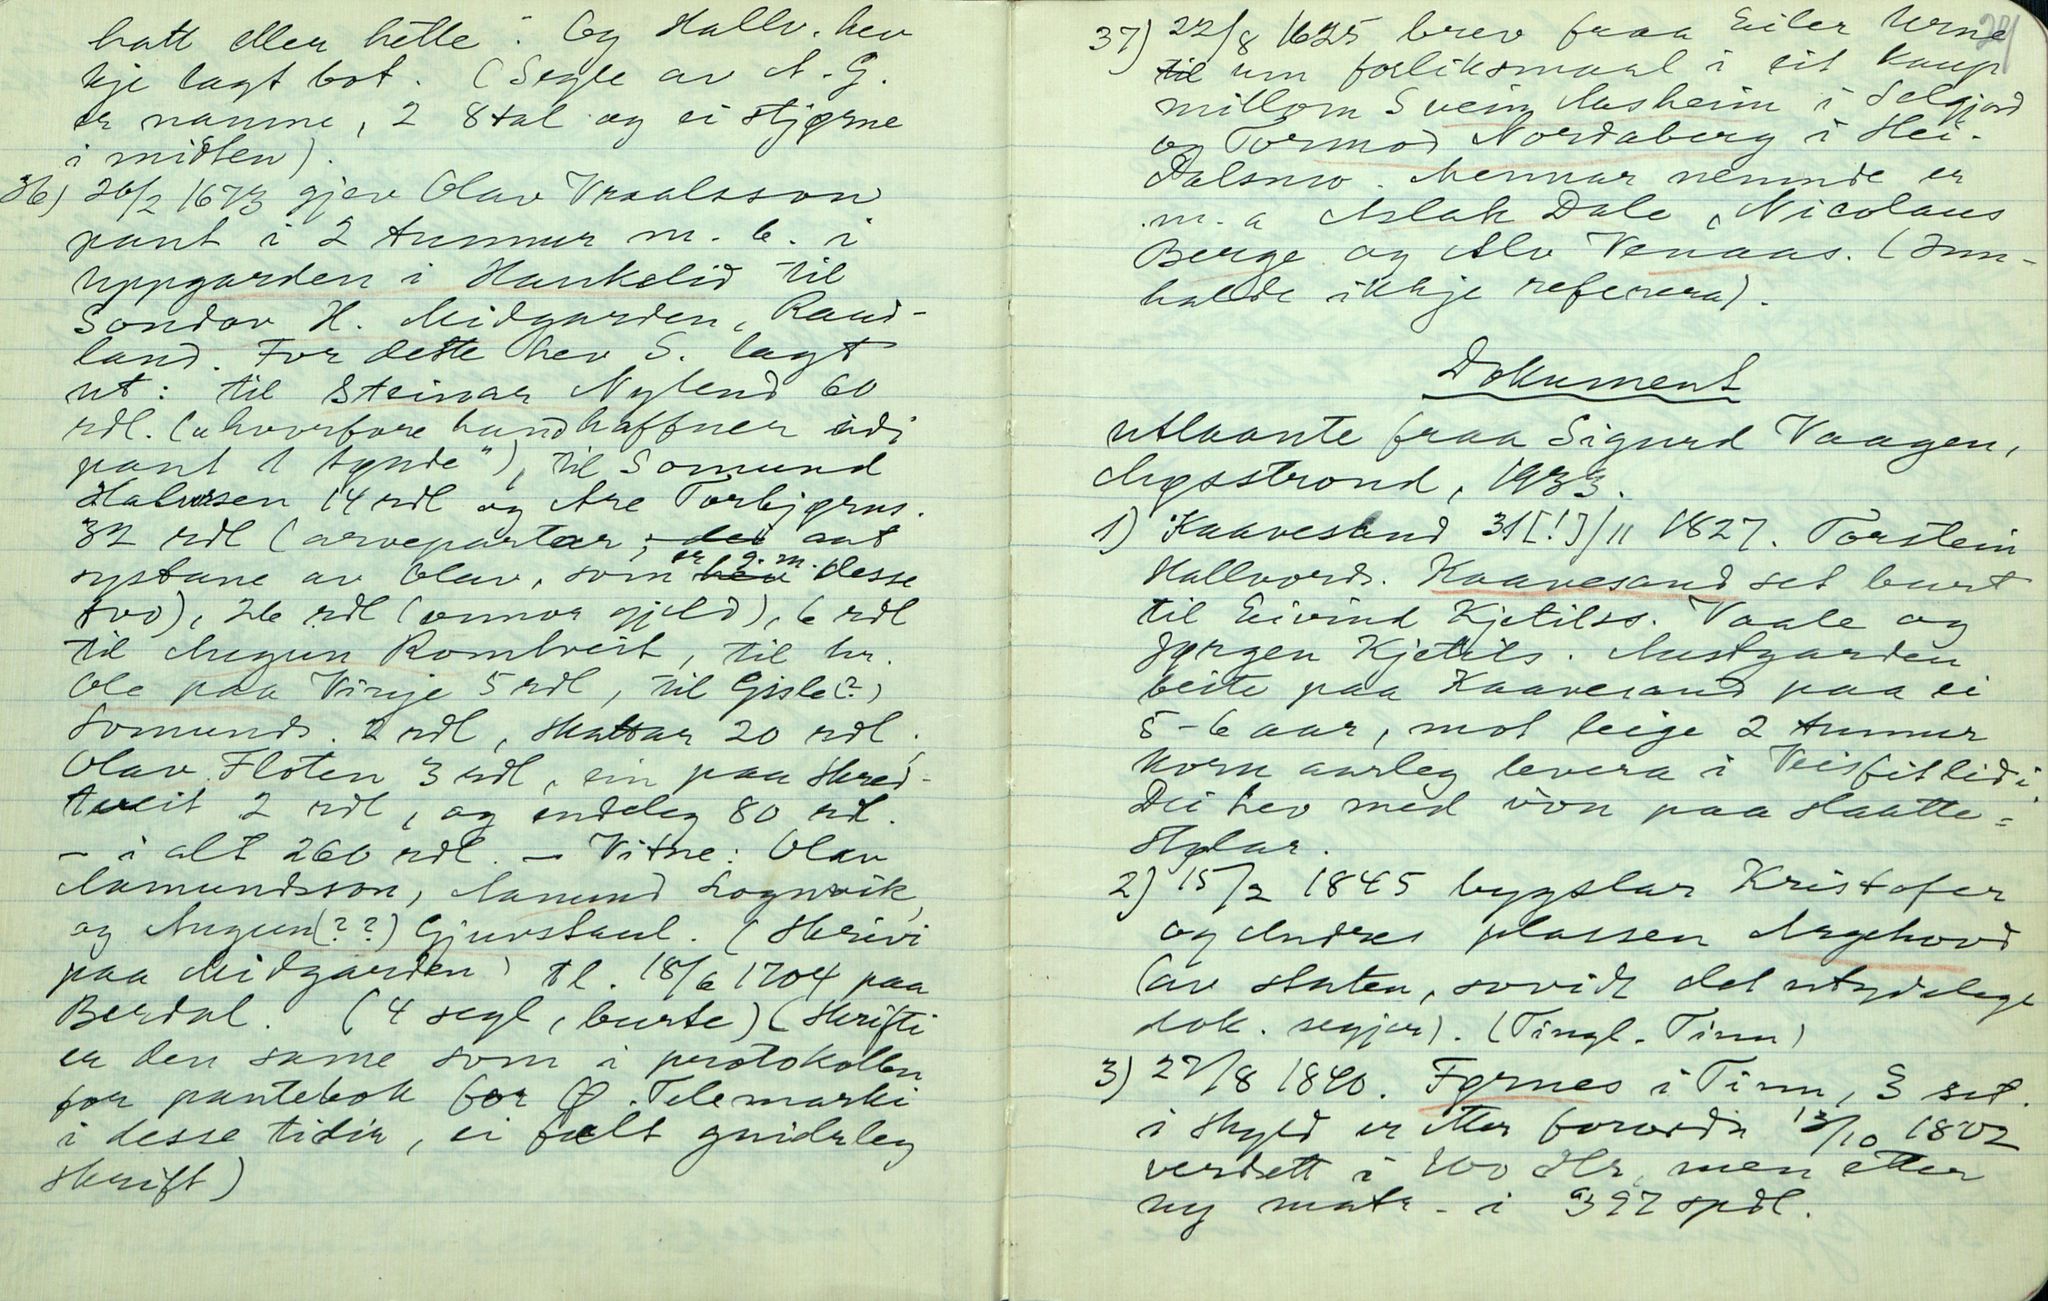 hatt eller hette". Og Hallv. hev
kje lagt bot. (Segle av N. G.
er namne, 2 8tal og ei stjørne
i midten).
36) 26/2 1673 gjev Olav Vraalsson
pant i 2 tunnur m. b. i
uppgarden i Haukelid til
Sondov H. Midgarden, Raud-
land. For dette hev S. lagt
ut: til Steinar Nylend 60
rdl. (u hvorfore hand haffner udi
pant 1 tynde"), til Somund
Halvorsen 14 rdl og Are Torbjørns.
32 rdl (arvepartar, dei aat
systane av Olav, som er g. m. hev desse
tvo), 26 rdl (onnor gjeld), 6 rdl
til Augun Romtveit, til hr.
Ole paa Vinje 5 rdl, til Gisle(?)
Somunds. 2 rdl, skattar 20 rdl.
Olav Floten 3 rdl, ein paa Skred-
tveit 2 rdl, og endeleg 80 rdl.
– i alt 260 rdl. – Vitne: Olav
Aamundsson, Aanund Lognvik,
og Augun(??) Gjuvstaul. (Skrivi
paa Midgarden) tl. 18/6 1704 paa
Berdal. (4 segl, burte) (Skrifti
er den same som i protokollen
for pantebok for Ø. Telemarki
i desse tidir, ei fælt gnidrleg
skrift)
37) 22/8 1625 brev fraa Eiler Urne
til um forliksmaal i eit kaup
millom Svein Aasheim i Selgjord
og Tormod Nordaberg i Hei-
dalsmo. Mennar nemnde er
m. a Aslak Dale, Nicolaus
Berge og Alv Venaas. (Inn-
halde ikkje referera).
Dokument
utlaante fraa Sigurd Vaagen,
Møsstrond, 1933.
1) Kaavesand 31[!]/11 1827. Torstein
Hallvords. Kaavesand set burt
til Eivind Kjetilss. Vaale og
Jørgen Kjetils. Austgarden
beite paa Kaavesand paa ei
5-6 aar, mot leige 2 tunnur
korn aarleg levera i Veisfitlidi.
Dei hev med von paa slaatte-
stylar.
2) 15/2 1845 bygslar Kristofer
og Andres plassen Argehovd
(av staten, sovidt det utydelege
dok. segjer). (Tingl. Tinn)
3) 27/8 1840. Førnes i Tinn, 3 set.
i skyld er etter forordn 13/10 1802
verdsett i 100 dlr, men etter
ny matr. i 397 spdl.